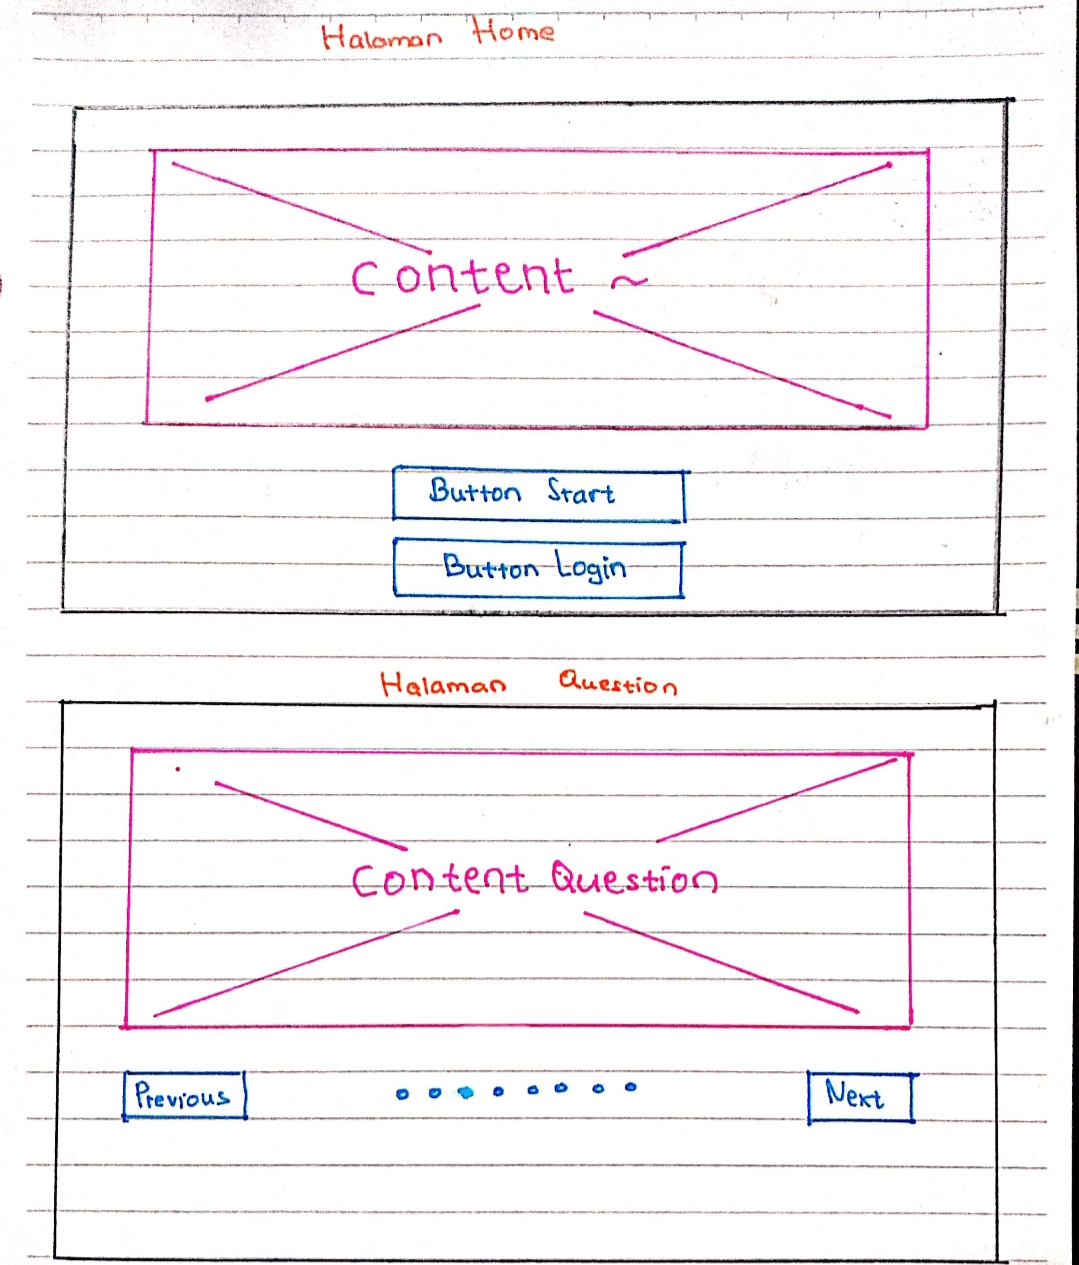 Halaman Home
Content ~
Button Start
Button Login
Halaman Question
Content Question
Previous
Next